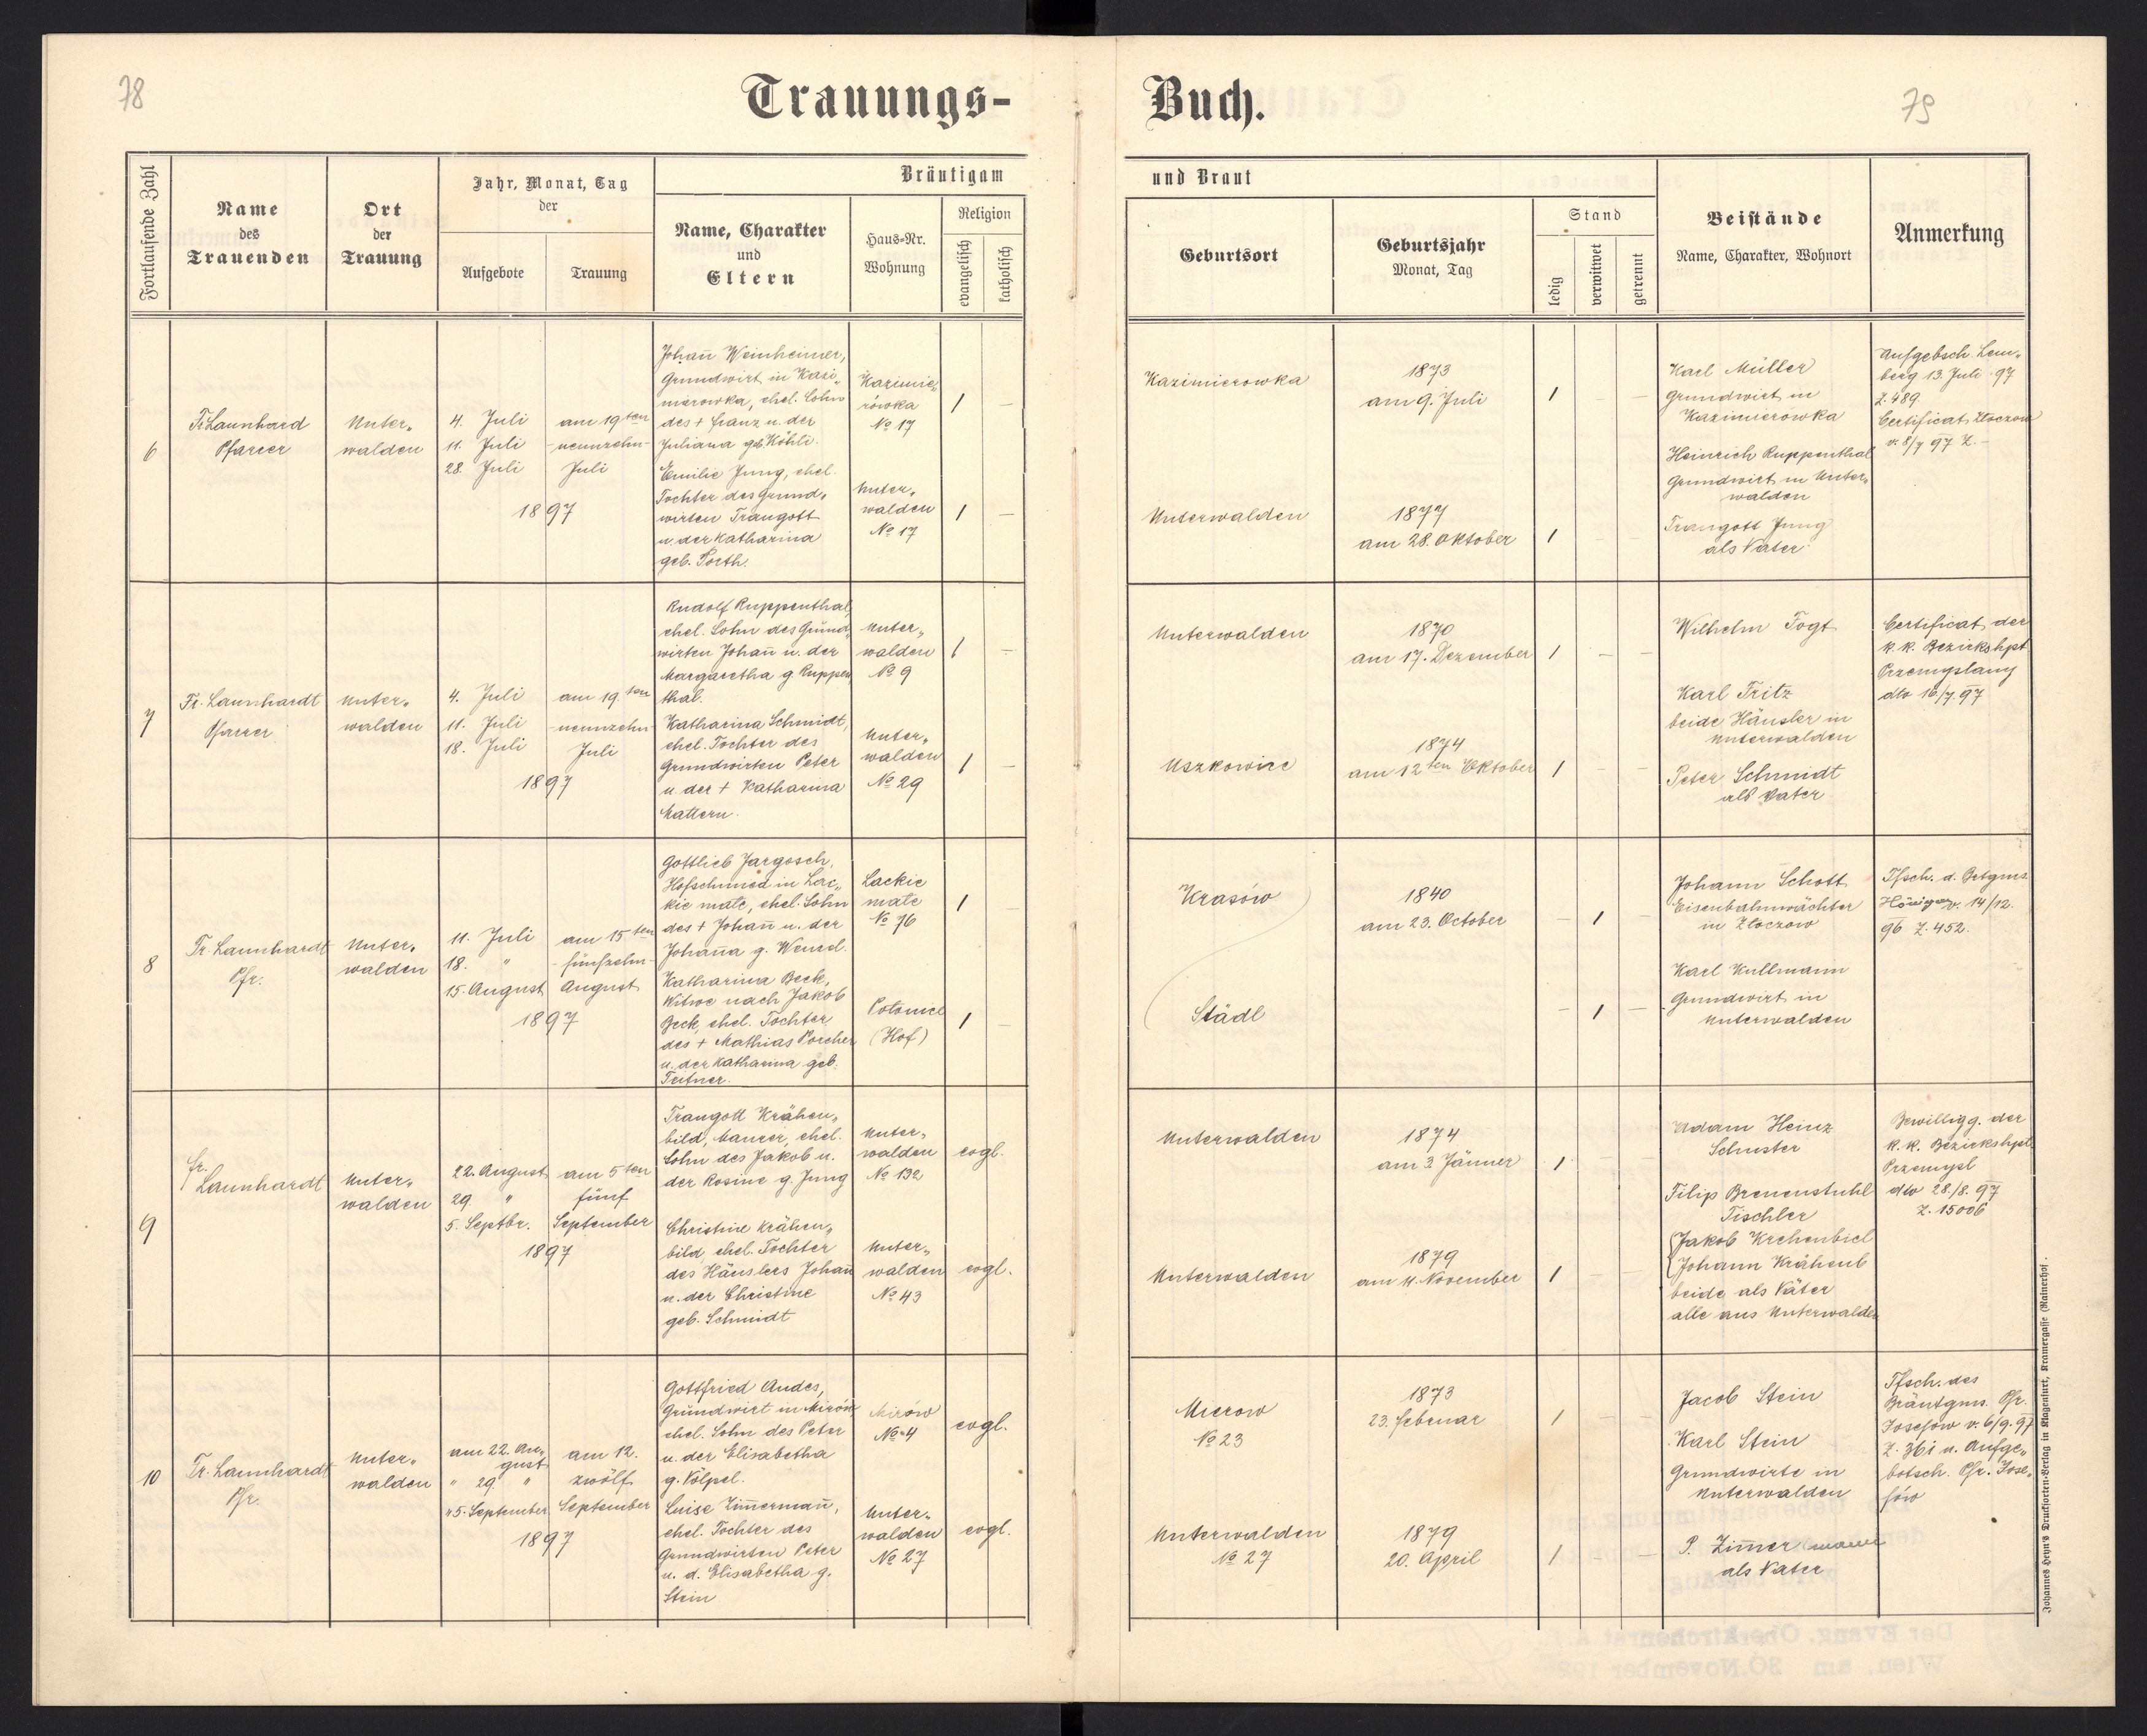 78
Trauungs-
Buch.
79
Fortlaufende Zahl
Name
des
Trauenden
Ort
der
Trauung
Jahr, Monat, Tag
der
Aufgebote
Trauung
Bräutigam
Name, Charakter
und
Eltern
Haus-Nr.
Wohnung
Religion
evangelisch
katholisch
und Braut
Geburtsort
Geburtsjahr
Monat, Tag
Stand
ledig
verwitwet
getrennt
Beistände
Name, Charakter, Wohnort
Anmerkung
6
Fr. Launhard
Pfarrer
Unter„
walden
4. Juli
11. Juli
28. Juli
am 19ten
-neunzehn-
Juli
1897
Johañ Weinheimer,
Grundwirt in Kazi„
mierowka, ehel. Sohn
des + Franz u. der
Juliana geb. Köhli.
Emilie Jung, ehel.
Tochter des Grund„
wirten Traugott
u. der Katharina
geb. Porth.
Kazimie„
rówka
No 17
Unter„
walden
No 17
1 –
1 –
Kazimierowka
Unterwalden
1873
am 9. Juli
1877
am 28. Oktober
1 – –
1 – –
Karl Müller
Grundwirt in
Kazimierowka
Heinrich Ruppenthal
Grundwirt in Unter„
walden
Traugott Jung
als Vater
Aufgebsch. Lem„
berg 13. Juli 97
Z. 489.
Certificat Zloczow
v. 8/7 97 Z. –
7
Fr. Launhardt
Pfarrer
Unter„
walden
4. Juli
11. Juli
18. Juli
am 19.ten
-neunzehn-
Juli
1897
Rudolf Ruppenthal,
ehel. Sohn des Grund„
wirten Johañ u. der
Margaretha g. Ruppen
thal.
Katharina Schmidt,
ehel. Tochter des
Grundwirten Peter
u. der + Katharina
Mattern.
Unter„
walden
No 9
Unter„
walden
No 29
1 –
1 –
Unterwalden
Uszkowice
1870
am 17. Dezember
1874
am 12ten Oktober
1 – –
1 – –
Wilhelm Fogt
Karl Fritz
beide Häusler in
Unterwalden
Peter Schmidt
als Vater
Certificat der
k. k. Bezirkshpt
Przemyslany
dto 16/7. 97
8
Fr. Launhardt
Pfr.
Unter„
walden
11. Juli
18. "
15. August
am 15ten
-fünfzehn-
August
1897
Gottlieb Jargosch,
Hofschmied in Lac„
kie małe, ehel. Sohn
des + Johañ u. der
Johaña g. Wenzel.
Katharina Beck,
Witwe nach Jakob
Beck, ehel. Tochter
des + Mathias Porcher
u. der Katharina geb.
Teitner.
Lackie
małe
No 76
Potonice
(Hof)
1
1 –
Krasów
Städl
1840
am 23. October
– 1 –
– 1 –
Johann Schott
Eisenbahnwächter
in Złoczow
Karl Kullmann
Grundwirt in
Unterwalden
Tfsch. d. Brtgms
v. 14/12.
96 Z. 452.
9
Fr.
Launhardt
Unter„
walden
22. August
29. "
5. Septbr.
am 5ten
fünf
September
1897
Traugott Krähen„
bild, Maurer, ehel.
Sohn des Jakob u.
der Rosine g. Jung
Christine Krähen„
bild ehel. Tochter
des Häuslers Johañ
u. der Christine
geb. Schmidt
Unter„
walden
No 132
Unter„
walden
No 43
evgl.
evgl.
Unterwalden
Unterwalden
1874
am 3. Jänner
1879
am 4. November
1 – –
1 – –
Adam Heinz
Schuster
Filip Brenenstuhl
Tischler
Jakob Krehenbiel
Johann Krähenb
beide als Väter
alle aus Unterwalden
Bewilligg. der
k. k. Bezirkshpt.
Przemysl
dto 28./8. 97
Z. 15006
10
Fr. Launhardt
Pfr.
Unter„
walden
am 22. Au„
gust
" 29. "
" 5. September
am 12.
zwölf
September
1897
Gottfried Andes,
Grundwirt in Mirów,
ehel. Sohn des Peter
u. der Elisabetha
g. Völpel.
Luise Zim̄ermañ,
ehel. Tochter des
Grundwirten Peter
u. d. Elisabetha g.
Stein
Mirów
No 4
Unter„
walden
No 27
evgl.
evgl.
Mierow
No 23
Unterwalden
No 27
1873
23. Februar
1879
20. April
1 – –
1 – –
Jacob Stein
Karl Stein
Grundwirte in
Unterwalden
P. Zim̄ermann
als Vater
Tfsch. des
Bräutgms. Pfr.
Josefow v. 6/9. 97
Z. 361 u. Aufge„
botsch. Pfr. Jose„
fów
Johannes Heyn's Drucksorten-Verlag in Klagenfurt, Kramergasse (Rainerhof).